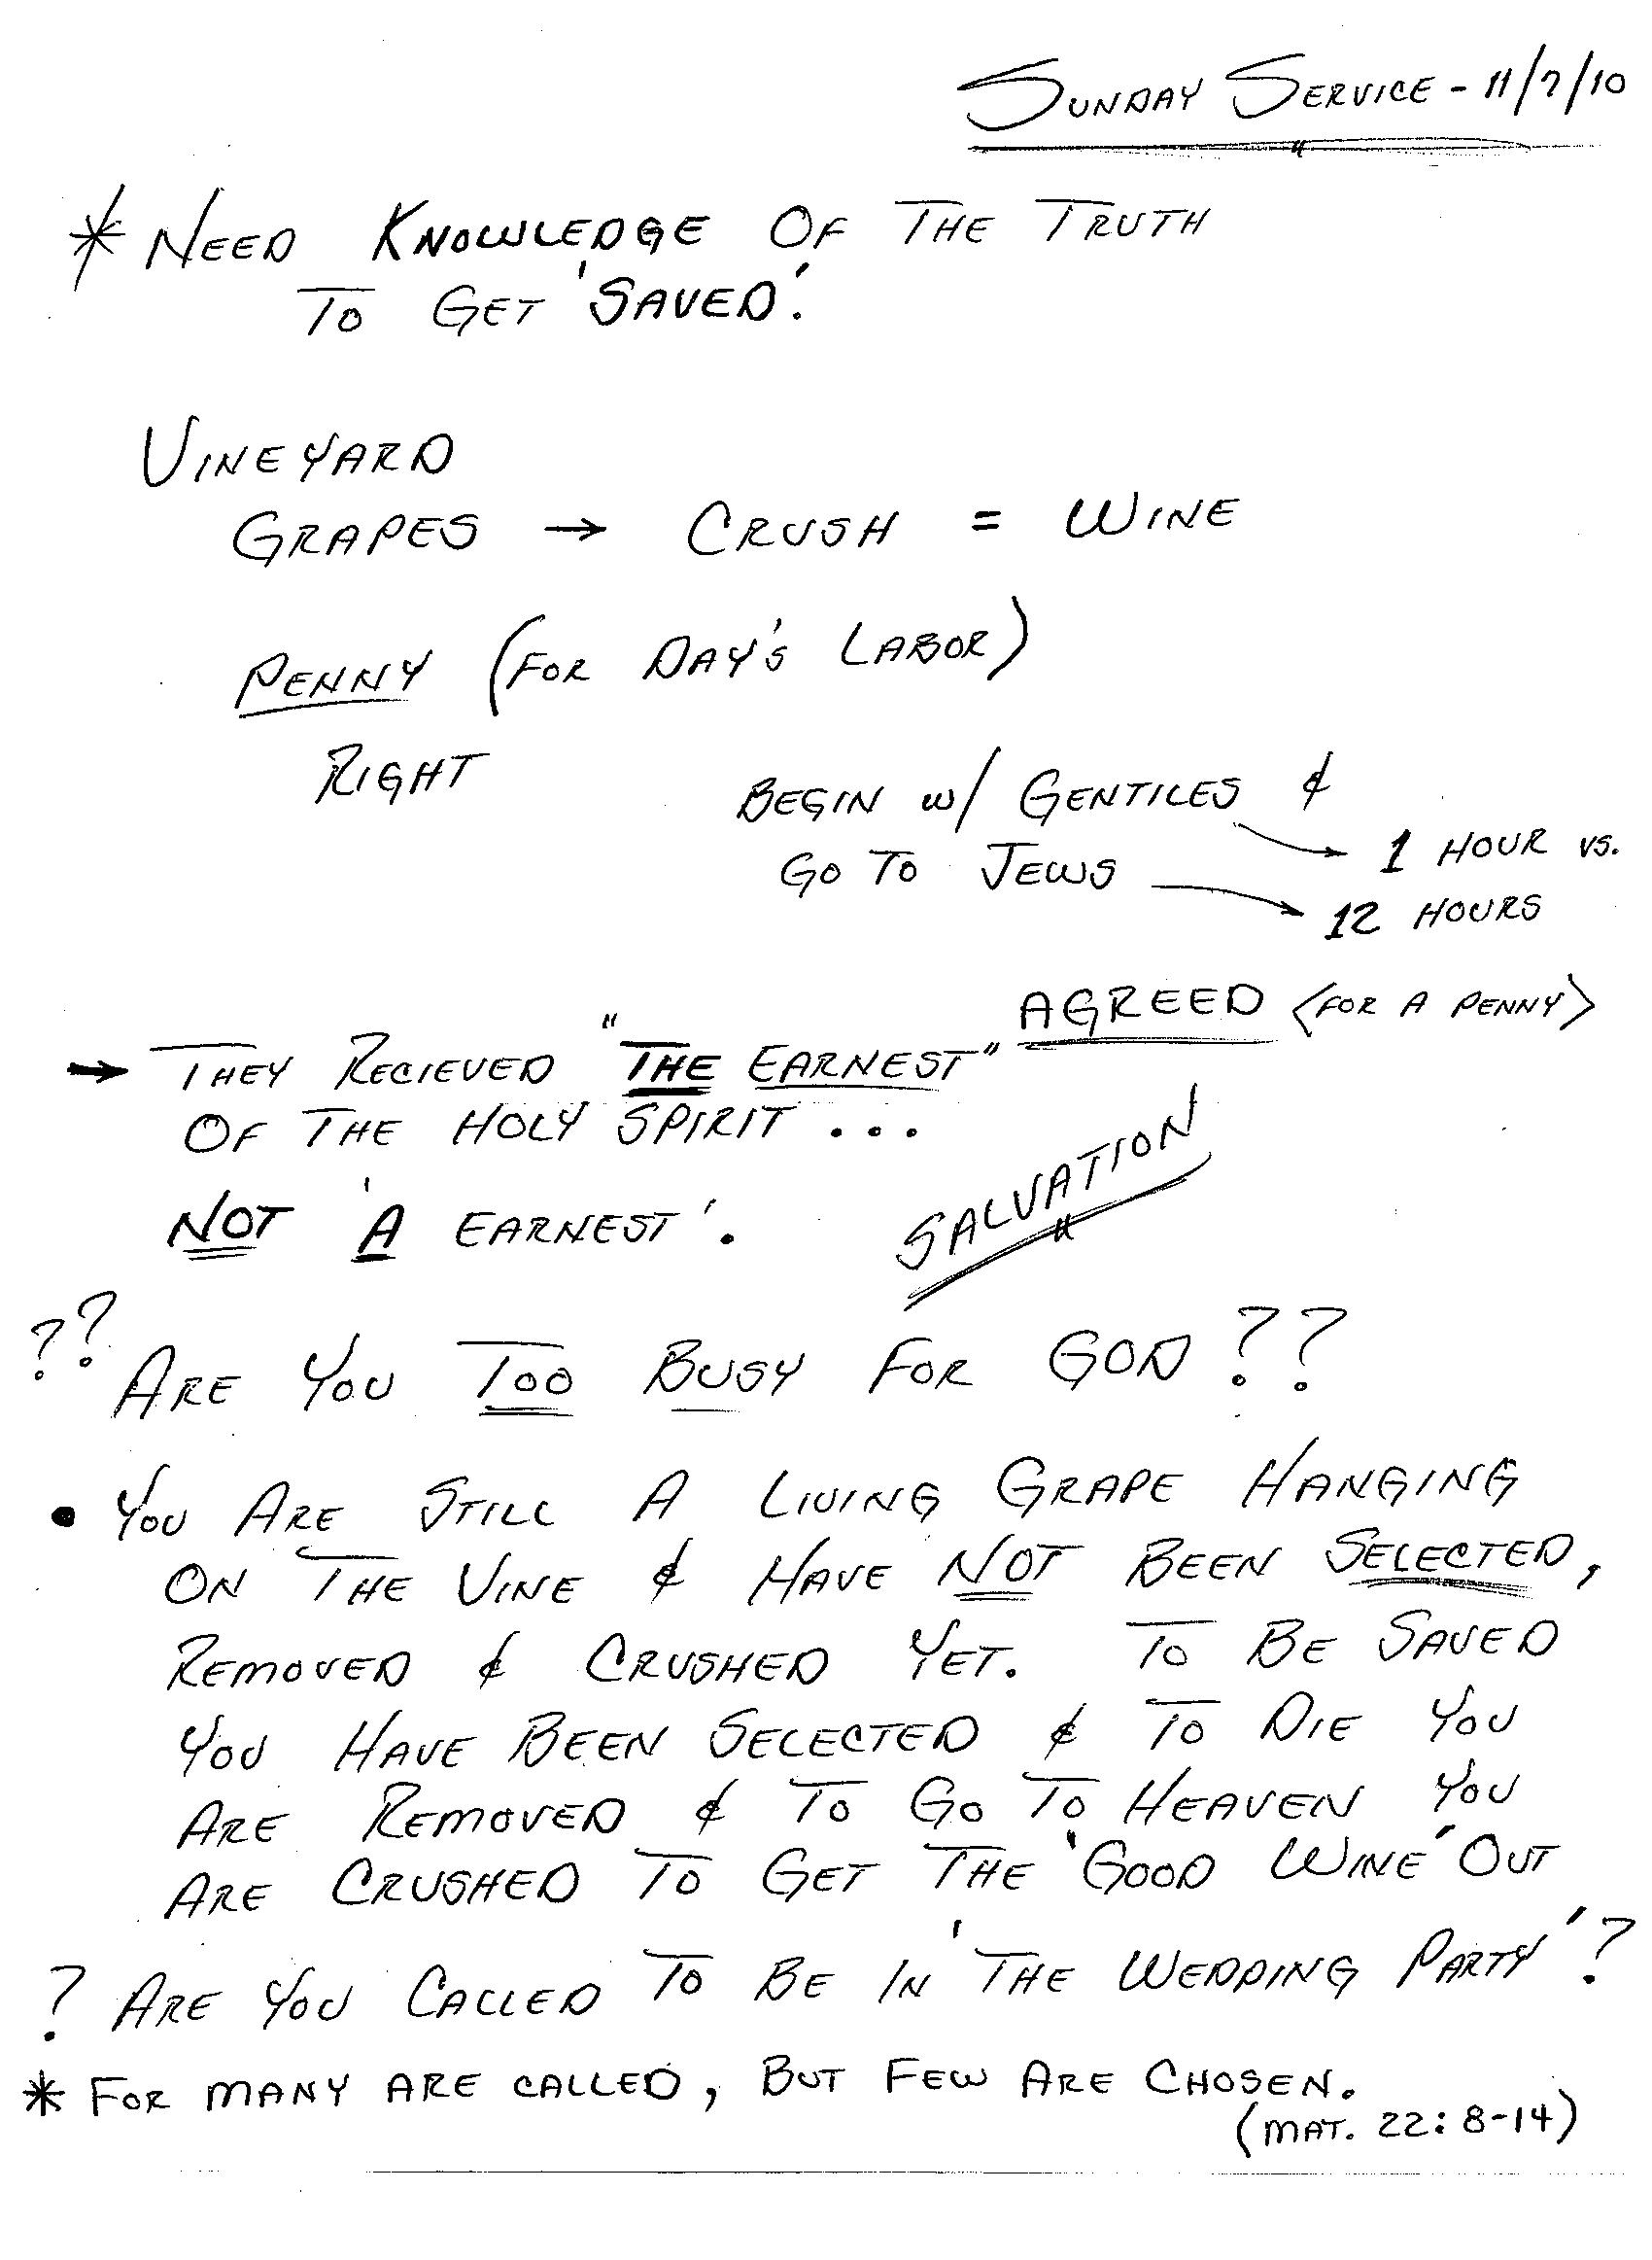 SUNDAY SERVICE - 11/7/10
* NEED KNOWLEDGE OF THE TRUTH
TO GET 'SAVED'.
VINEYARD
GRAPES → CRUSH = WINE
PENNY (FOR DAY'S LABOR)
RIGHT
BEGIN w/ GENTILES &
→ 1 HOUR vs.
GO TO JEWS
→ 12 HOURS
AGREED <FOR A PENNY>
→ THEY RECIEVED "THE EARNEST"
OF THE HOLY SPIRIT ...
SALVATION
NOT 'A EARNEST'.
?? ARE YOU TOO BUSY FOR GOD ??
• YOU ARE STILL A LIVING GRAPE HANGING
ON THE VINE & HAVE NOT BEEN SELECTED,
REMOVED & CRUSHED YET. TO BE SAVED
YOU HAVE BEEN SELECTED & TO DIE YOU
ARE REMOVED & TO GO TO HEAVEN YOU
ARE CRUSHED TO GET THE 'GOOD WINE' OUT
? ARE YOU CALLED TO BE IN 'THE WEDDING PARTY'?
* FOR MANY ARE CALLED, BUT FEW ARE CHOSEN.
(MAT. 22: 8-14)